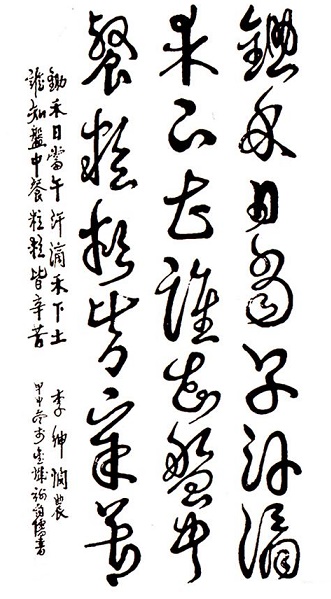 鋤禾日當午汗滴
禾下土誰知盤中
餐粒粒皆辛苦
鋤禾日當午汗滴禾下土
誰知盤中餐粒粒皆辛苦
李紳憫農
甲申冬於金城書